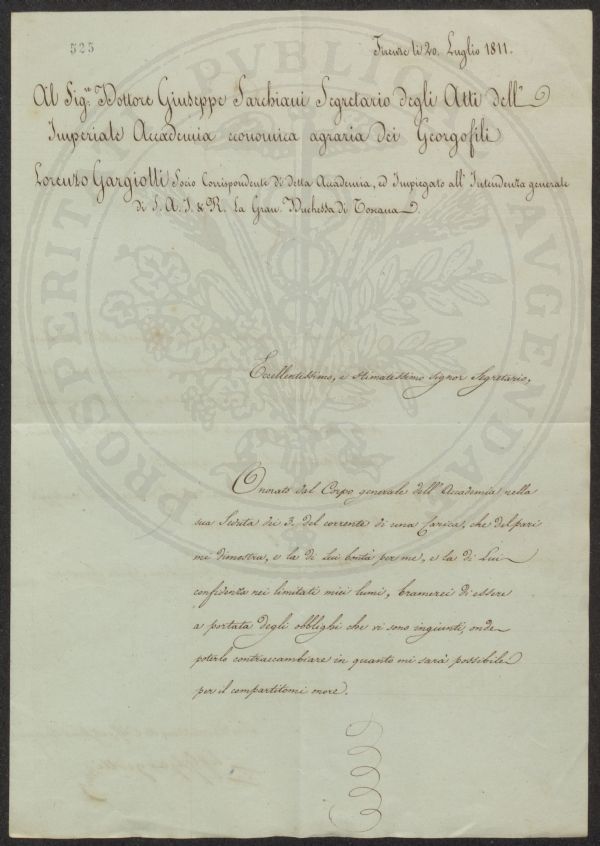 525
Firenze li 20. Luglio 1811.
Al Sig.re Dottore Giuseppe Sarchiani Segretario degli Atti dell'
Imperiale Accademia economica agraria dei Georgofili
Lorenzo Gargiolli Socio Corrispondente di detta Accademia, ed Impiegato all' Intendenza generale
di S. A. I. & R. La Gran Duchessa di Toscana.
Eccellentissimo, e Stimatissimo Signor Segretario,
Onorato dal Corpo generale dell' Accademia nella
sua Seduta dei 3. del corrente di una Carica, che del pari
mi dimostra, e la di Lui bontà per me, e la di Lui
confidenza nei limitati miei lumi, bramerei di essere
a portata degli obblighi che vi sono ingiunti, onde
poterlo contraccambiare in quanto mi sarà possibile
per il compartitomi onore.
PROSPERITATI PUBLICAE AUGENDAE